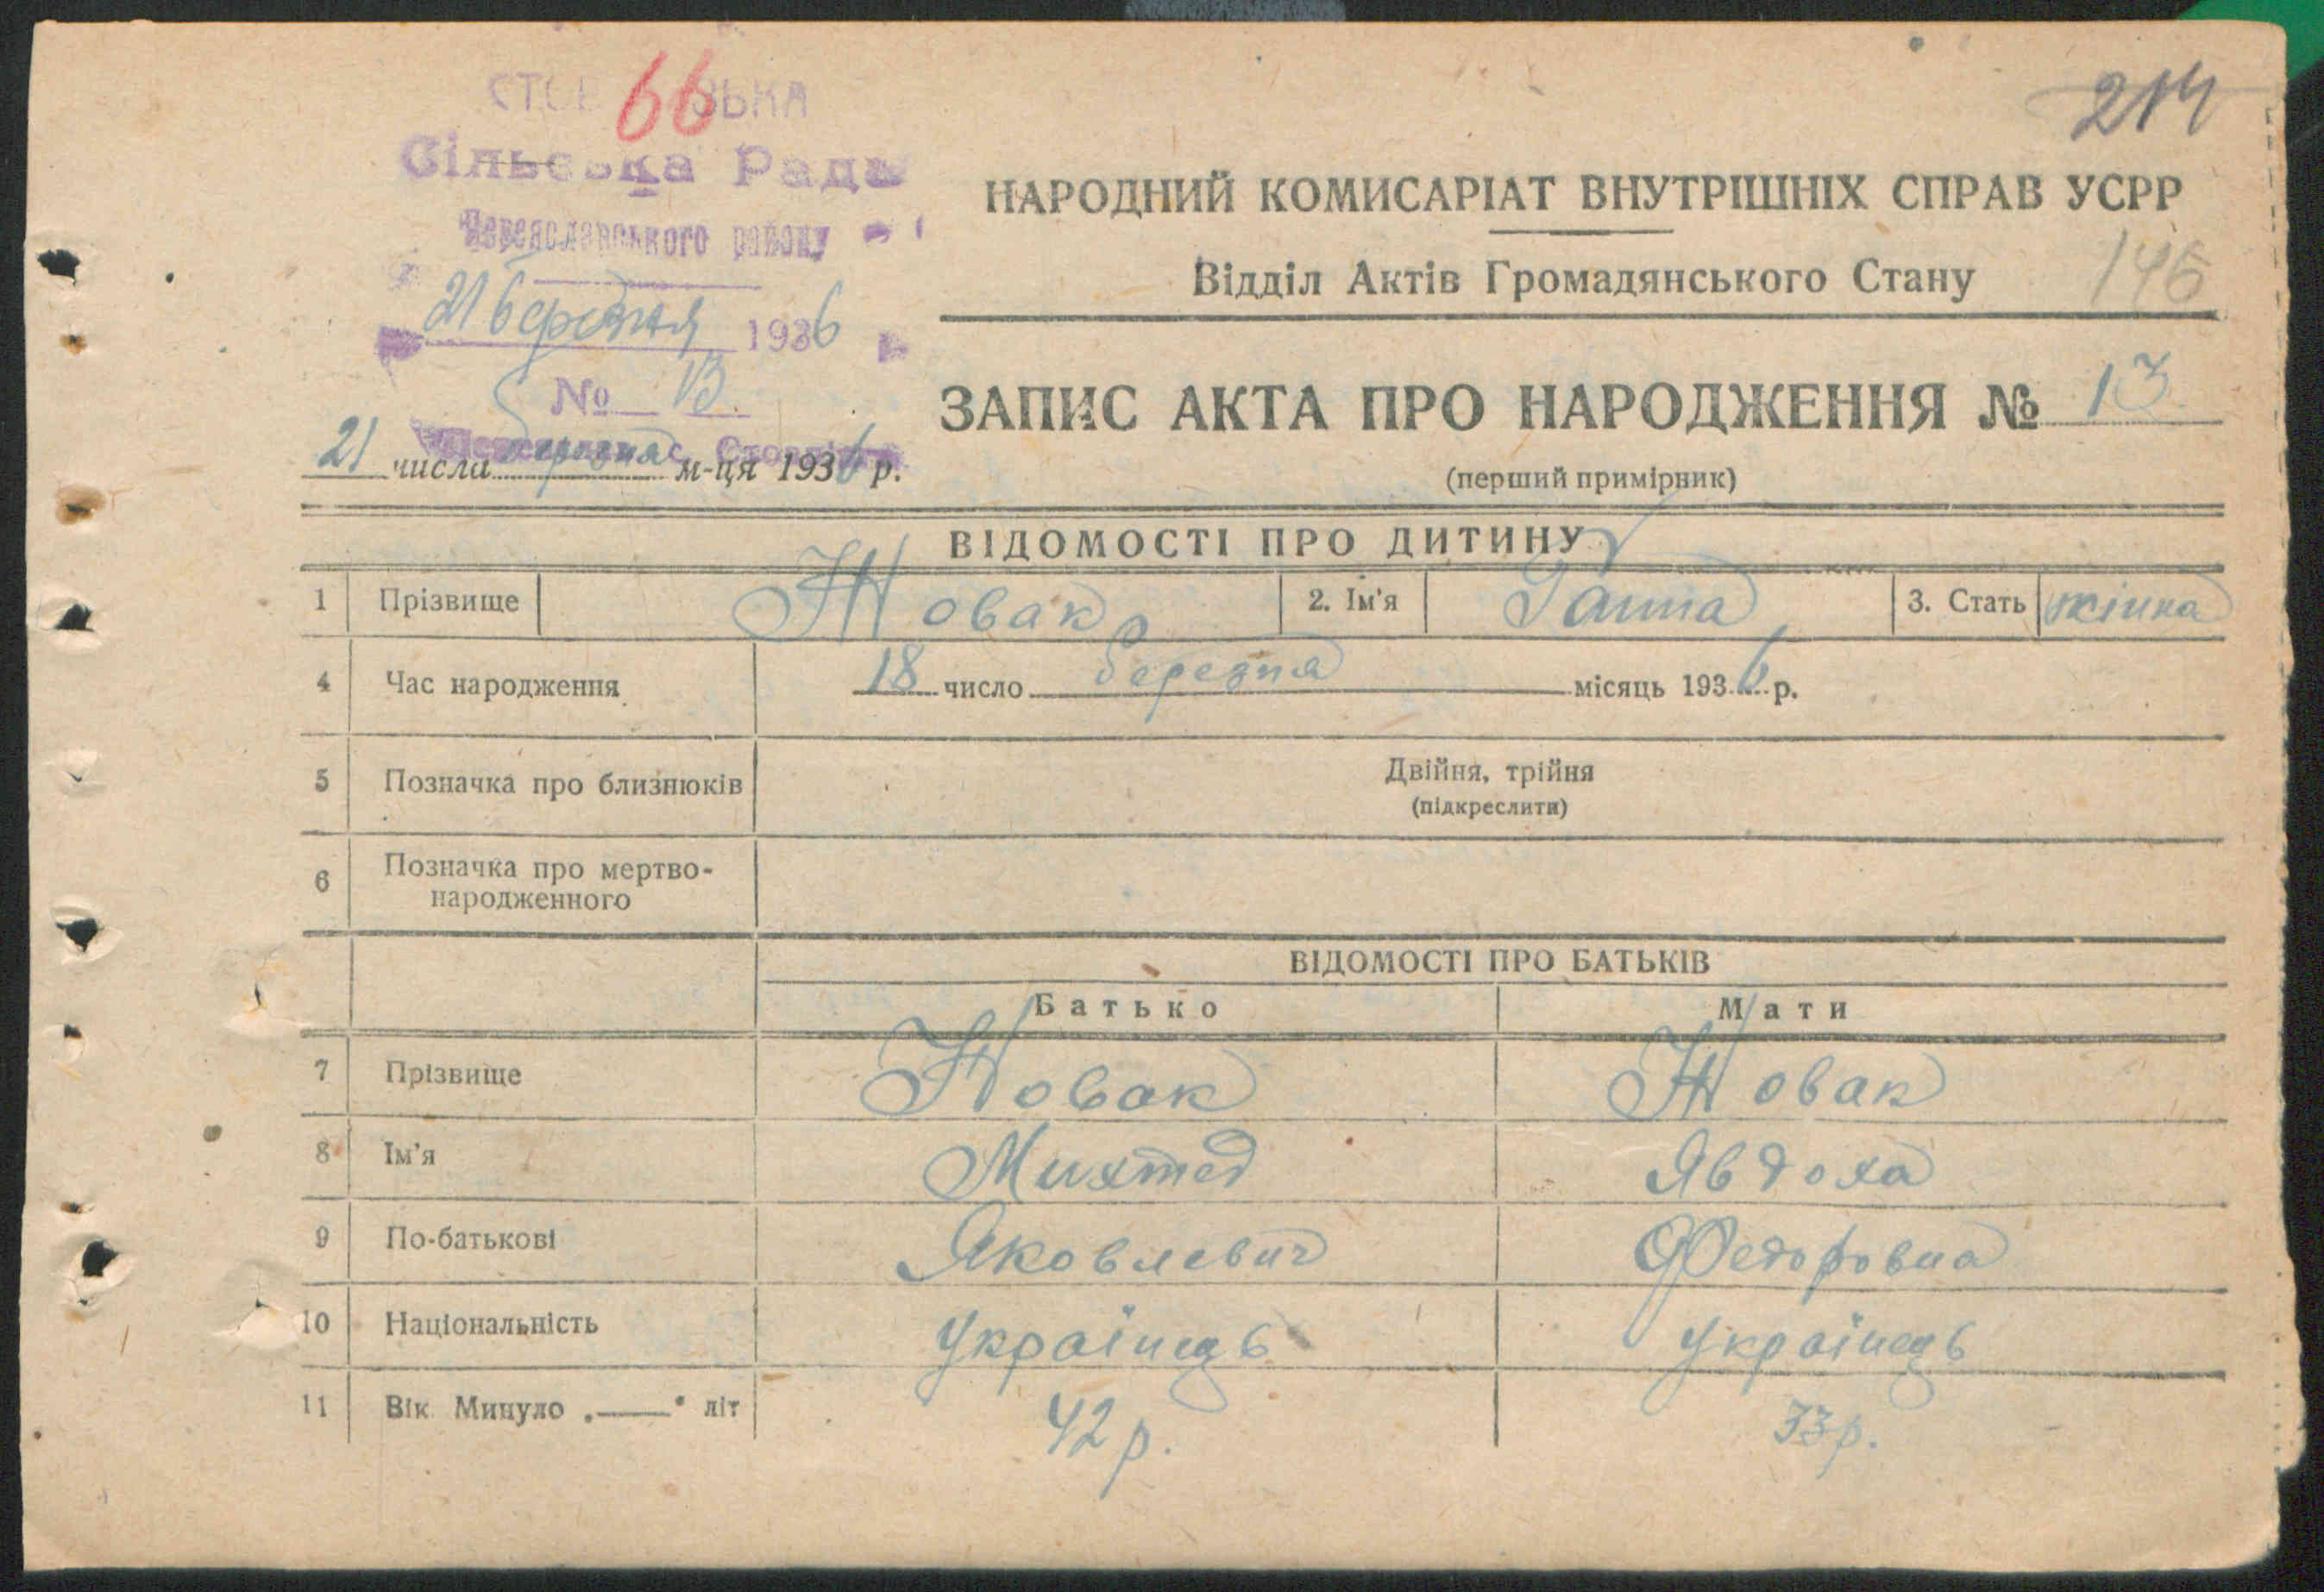 66
214
Сільська Рада
Переяславського району
21 березня 1936
№ 13
НАРОДНИЙ КОМИСАРІАТ ВНУТРІШНІХ СПРАВ УСРР
Відділ Актів Громадянського Стану
146
ЗАПИС АКТА ПРО НАРОДЖЕННЯ № 13
21 числа березня м-ця 1936 р.
(перший примірник)
ВІДОМОСТІ ПРО ДИТИНУ
1 Прізвище Новак 2. Ім'я Ганна 3. Стать жінка
4 Час народження 18 число березня місяць 1936 р.
5 Позначка про близнюків Двійня, трійня
(підкреслити)
6 Позначка про мертво-
народженного
ВІДОМОСТІ ПРО БАТЬКІВ
Батько Мати
7 Прізвище Новак Новак
8 Ім'я Михтед Явдоха
9 По-батькові Яковлевич Федоровна
10 Національність Українець Українець
11 Вік Минуло „—“ літ 42 р. 33 р.